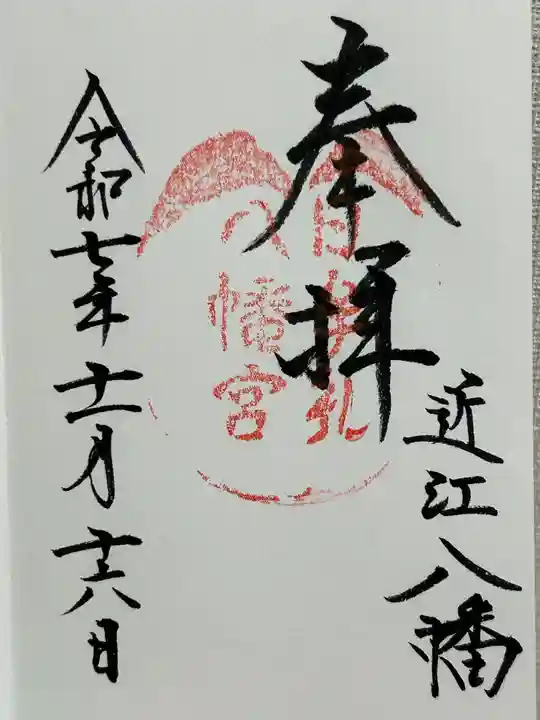 奉拝
近江八幡
日牟禮
八幡宮
令和七年十一月十六日